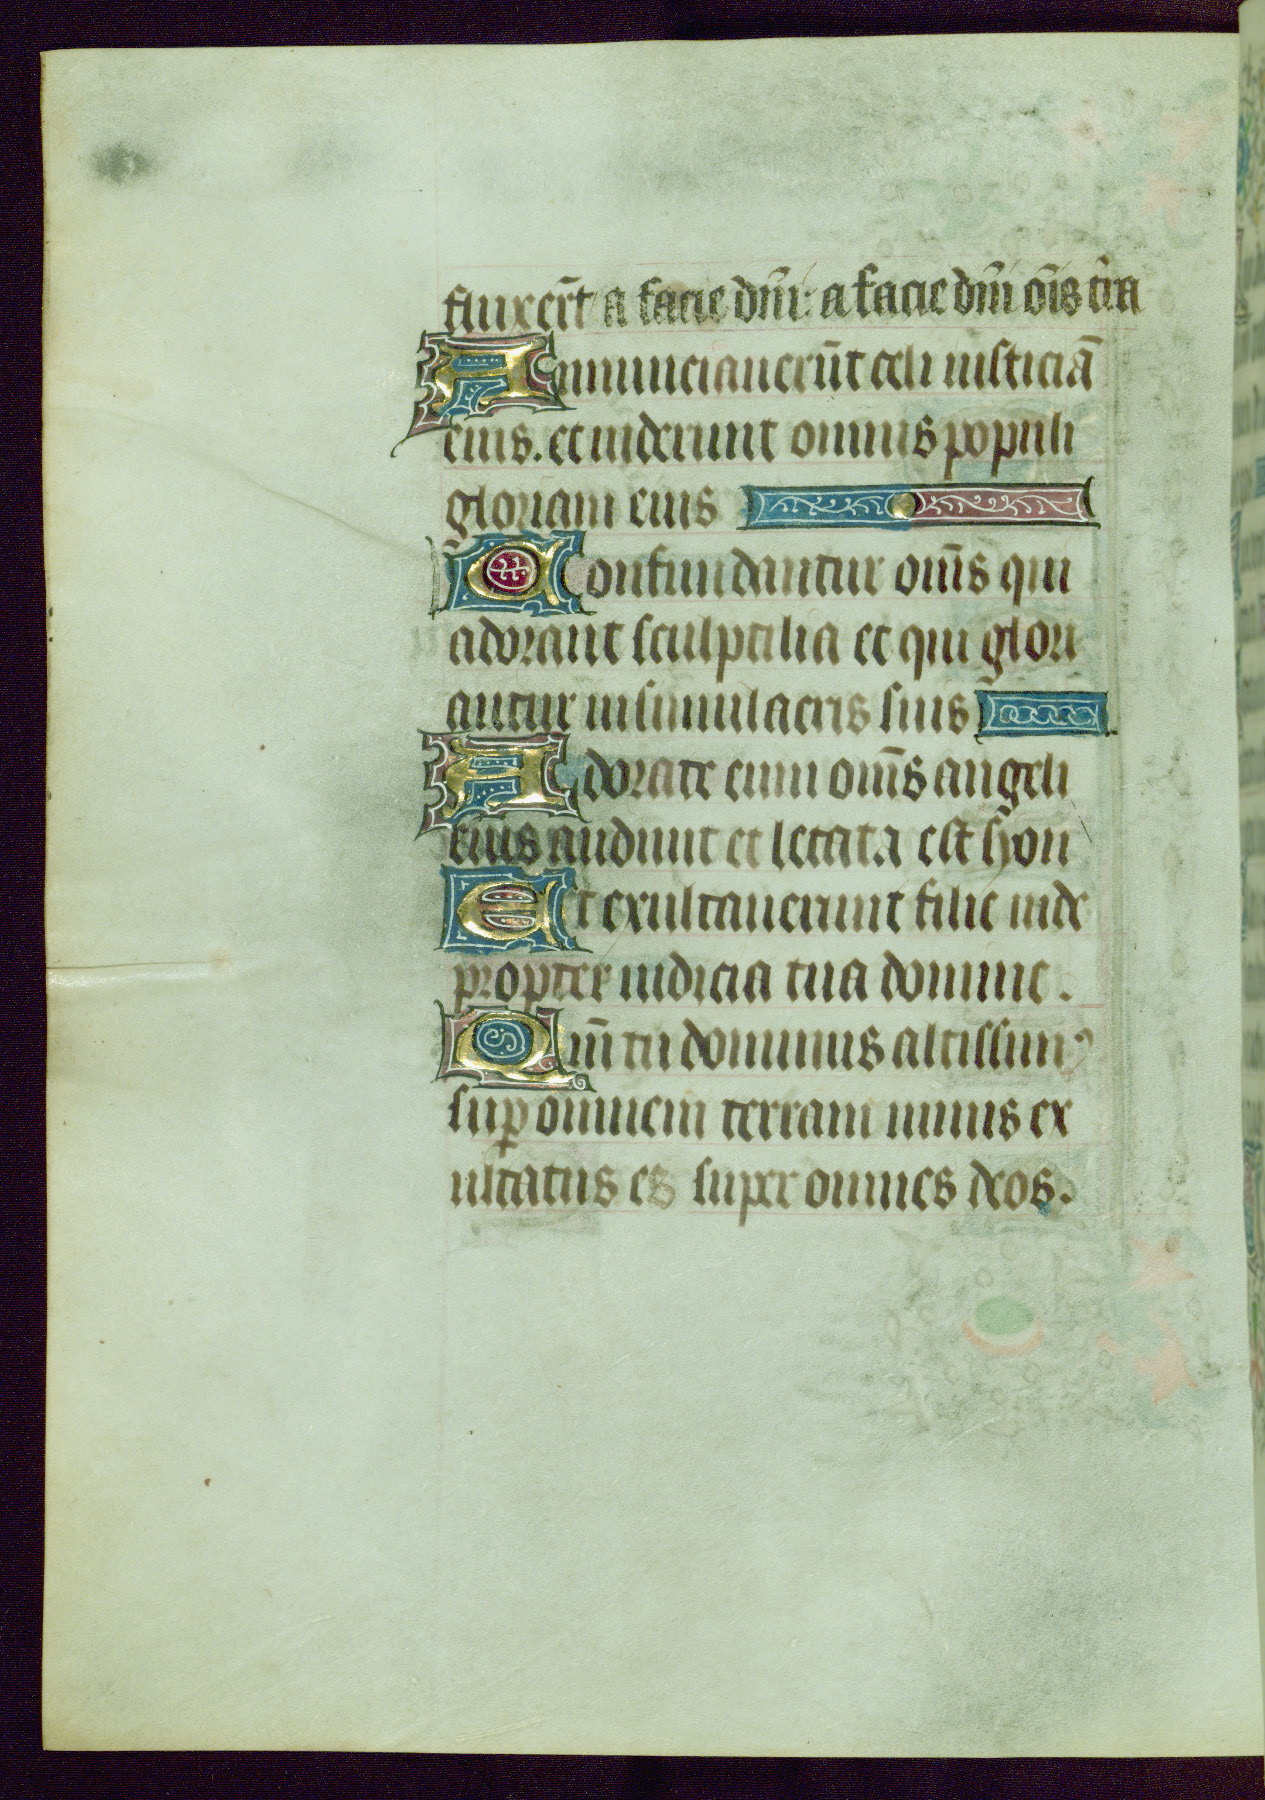 fluxer̄t a facie dn̄i: a facie dn̄i om̄is t̄ra
Annunciauerūt celi iusticiā
eius. et uiderunt omnis populi
gloriam eius
Confundantur om̄s qui
adorant sculptilia et qui glori
antur in simulacris suis
Adorate eum om̄s angeli
eius audiuit et letata est syon
Et exultauerunt filie iude
propter iudicia tua domine.
Qm̄ tu dominus altissimꝰ
suꝑ omnem terram nimis ex
ultatus es super omnes deos.